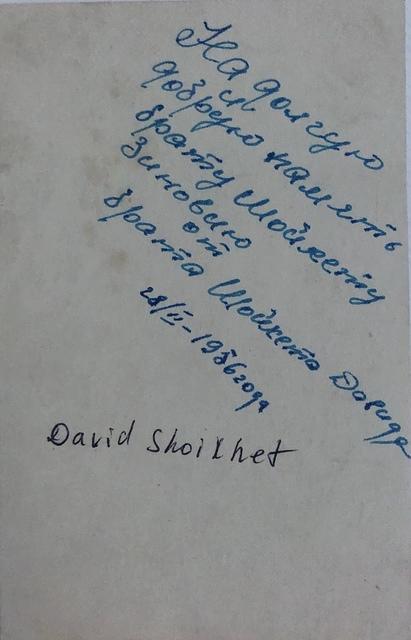 На долгую
и
добрую память
брату Шойхету
Зиновию
от
брата Шойхета Давида
28/II-1956 года
David Shoikhet